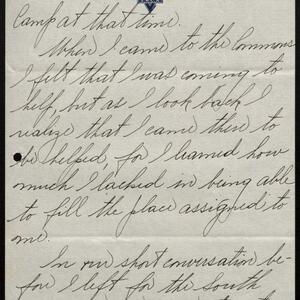 Camp at that time.
When I came to the Commons
I felt that I was coming to
help, but as I look back I
realize that I came there to
be helped, for I learned how
much I lacked in being able
to fill the place assigned to
me.
In our short conversation be-
fore I left for the South